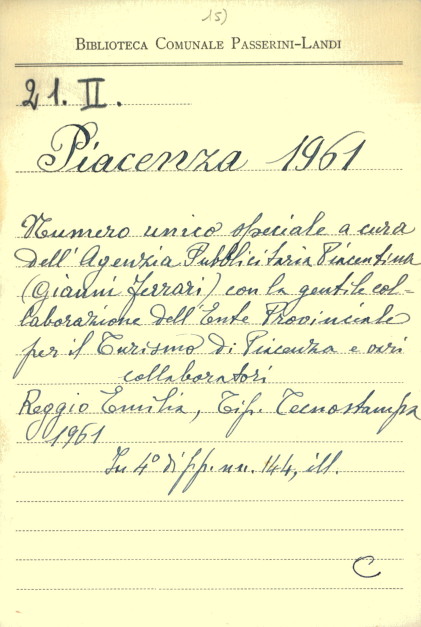 15)
BIBLIOTECA COMUNALE PASSERINI-LANDI
21. II.
Piacenza 1961
Numero unico speciale a cura
dell'Agenzia Pubblicitaria Piacentina
(Gianni Ferrari) con la gentile col-
laborazione dell'Ente Provinciale
per il Turismo di Piacenza e vari
collaboratori
Reggio Emilia, Tip. Tecnostampa
1961
In 4° di pp. nn. 144, ill.
C